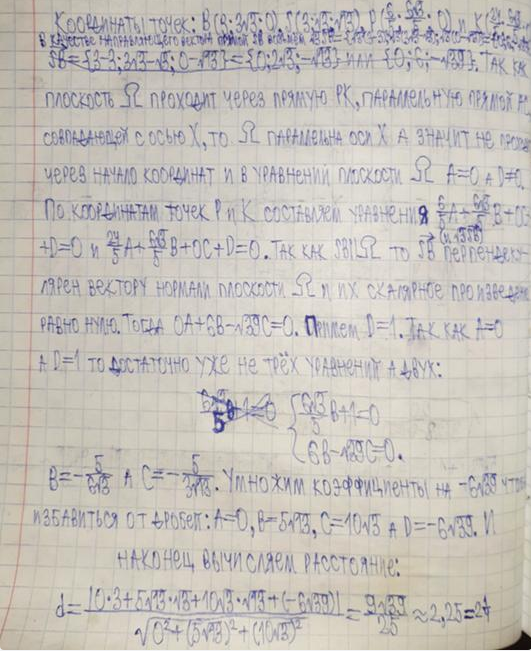 Координаты точек: B(3; 3√3; 0), S(3; √3; √13), P(6/5; 6√3/5; 0) и K(24/5;
В качестве направляющего вектора прямой SB возьмём
SB={3-3; 3√3-√3; 0-√13}={0; 2√3; -√13} или {0; 6; -√39}. Так как
плоскость Ω проходит через прямую PK, параллельную прямой
совпадающей с осью X, то Ω параллельна оси X. А значит не
через начало координат и в уравнении плоскости Ω A=0 а D≠0.
По координатам точек P и K составляем уравнения 6/5A+6√3/5B+0C
+D=0 и 24/5A+6√3/5B+0C+D=0. Так как SB||Ω то SB (и PSB) перпендику
лярен вектору нормали плоскости Ω и их скалярное произведение
равно нулю. Тогда 0A+6B-√39C=0. Примем D=1. Так как A=0
а D=1 то достаточно уже не трёх уравнений а двух:
6√3/5B+1=0
6B-√39C=0.
B=-5/6√3 а C=-5/3√13. Умножим коэффициенты на -6√39 чтобы
избавиться от дробей: A=0, B=5√13, C=10√3 а D=-6√39. И
наконец вычисляем расстояние:
d=|0·3+5√13·√3+10√3·√13+(-6√39)|/√0²+(5√13)²+(10√3)²=9√39/25≈2,25=2